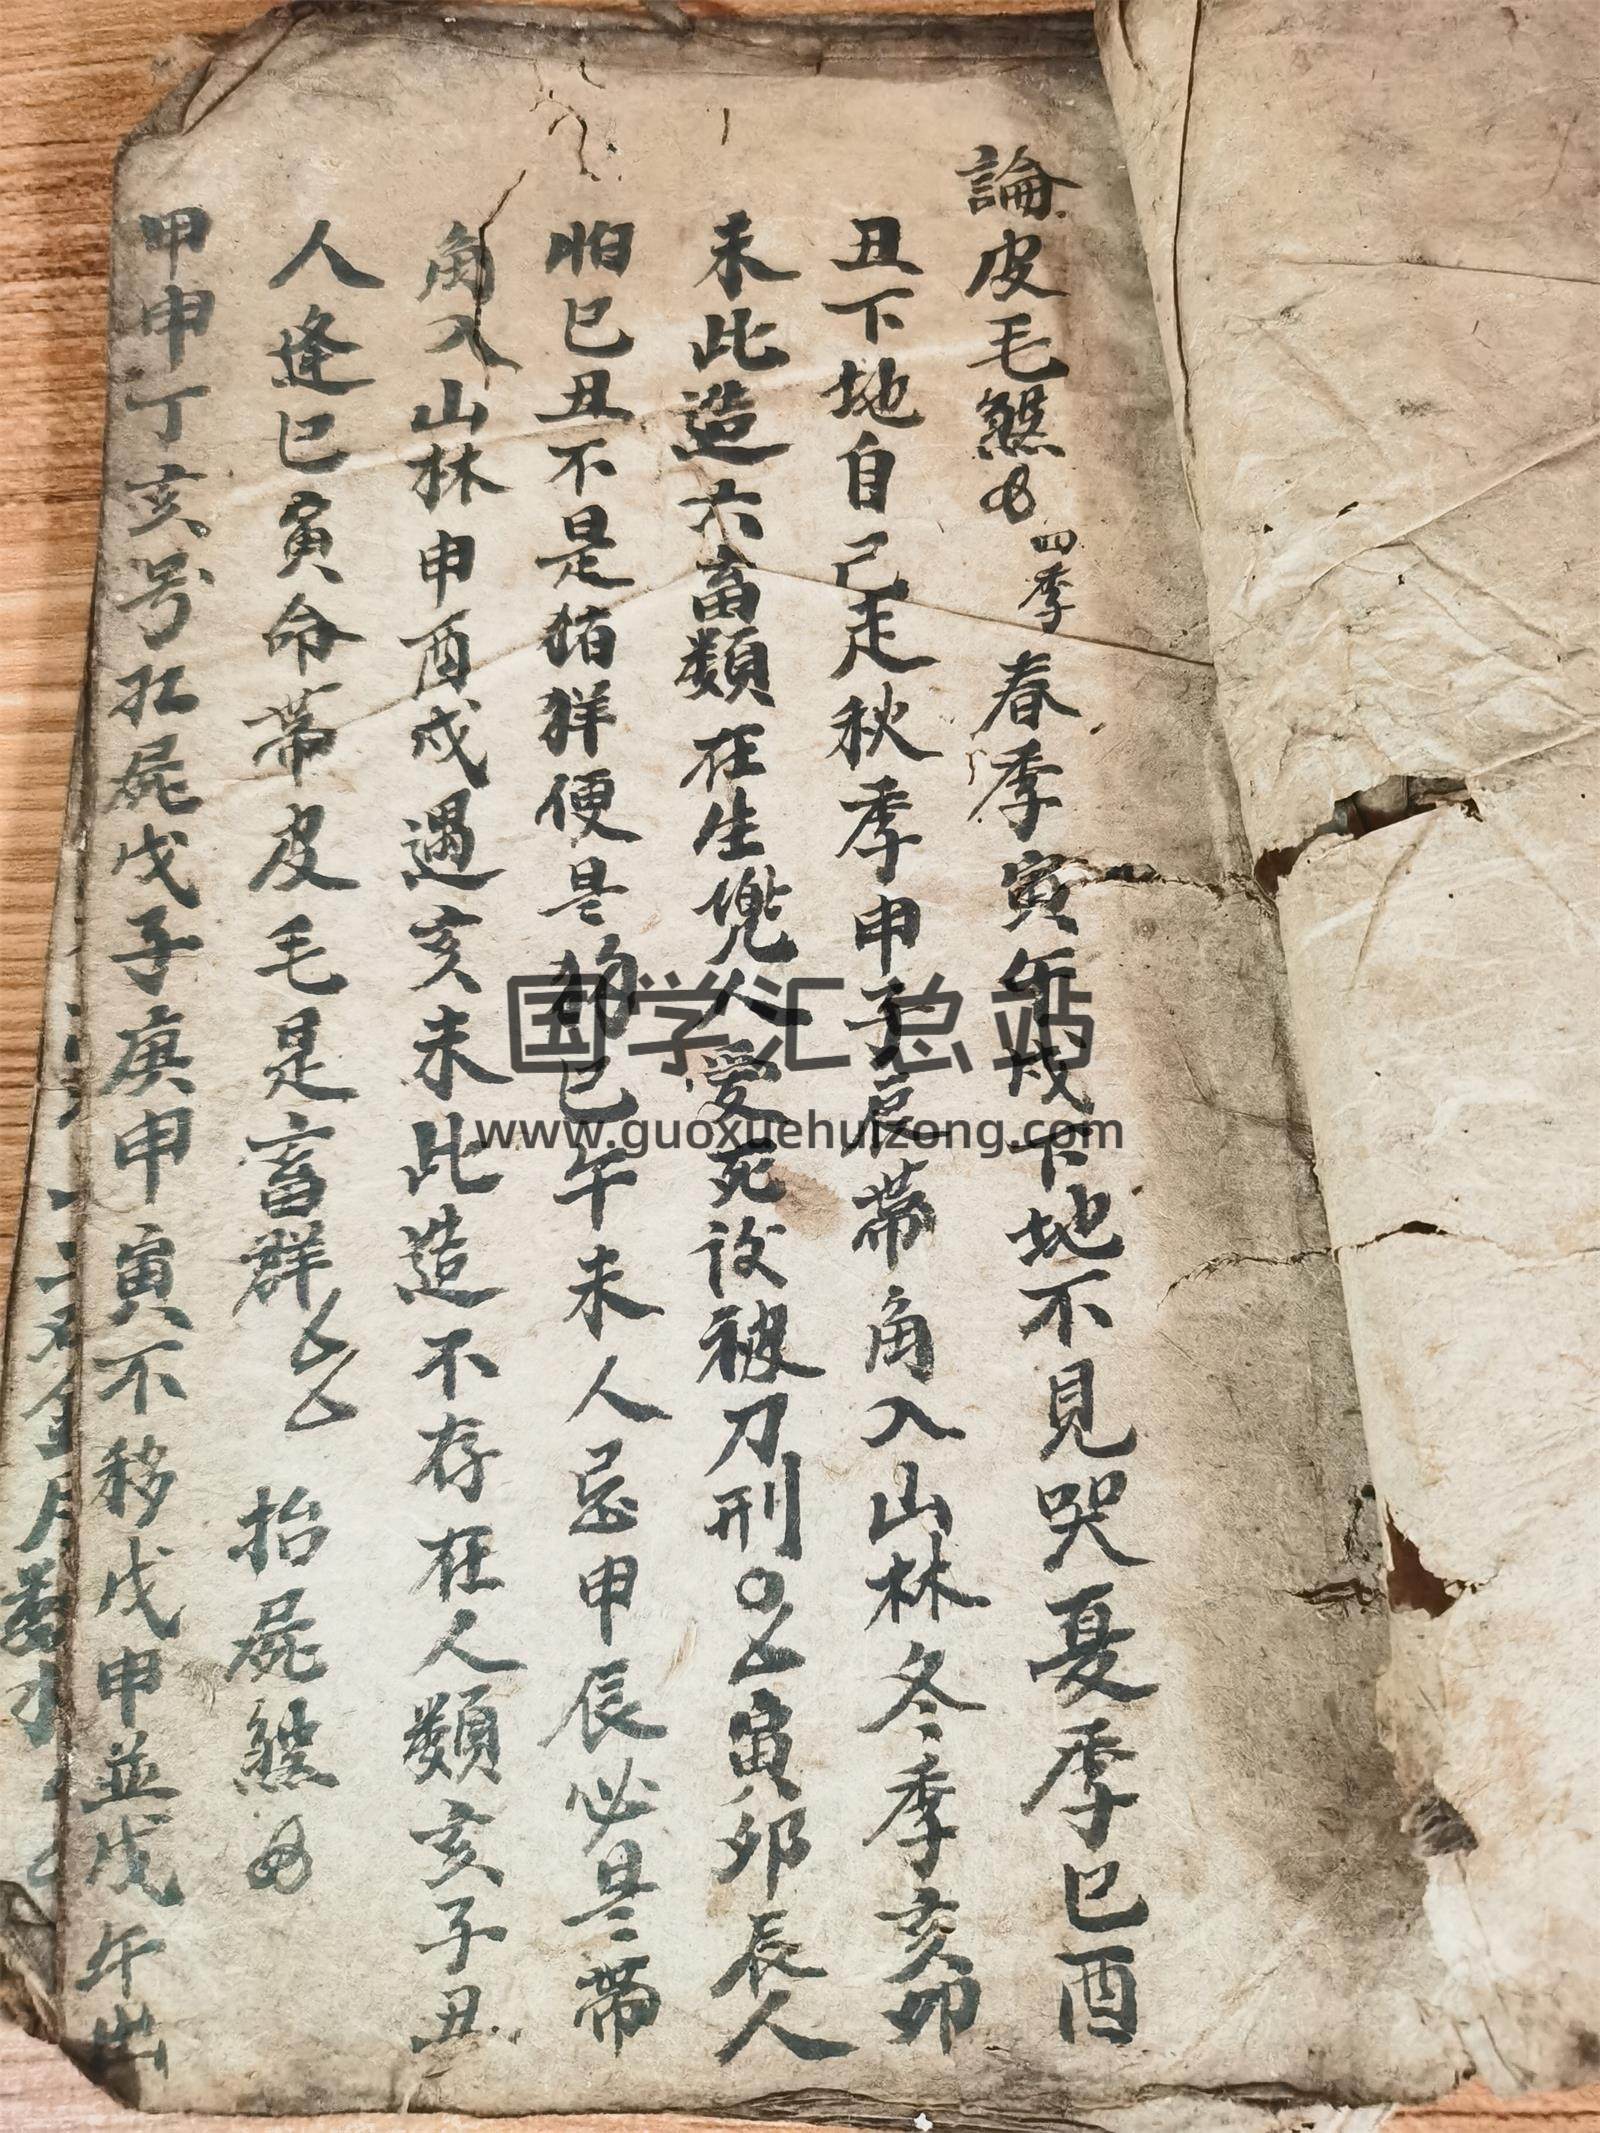 論皮毛煞 四季 春季寅午戌下地不見哭夏季巳酉
丑下地自己走秋季申子辰带角入山林冬季亥卯
未此造六畜類在生兇人愛死後被刀刑 寅卯辰人
怕巳丑不是猪羊便是狗巳午未人忌申辰必是帶
角入山林申酉戌遇亥未此造不存在人類亥子丑
人逢巳寅命帶皮毛是畜群 抬屍煞
甲申丁亥号扛屍戊子庚申寅不移戊申並戊午出
国学汇总站
www.guoxuehuizong.com